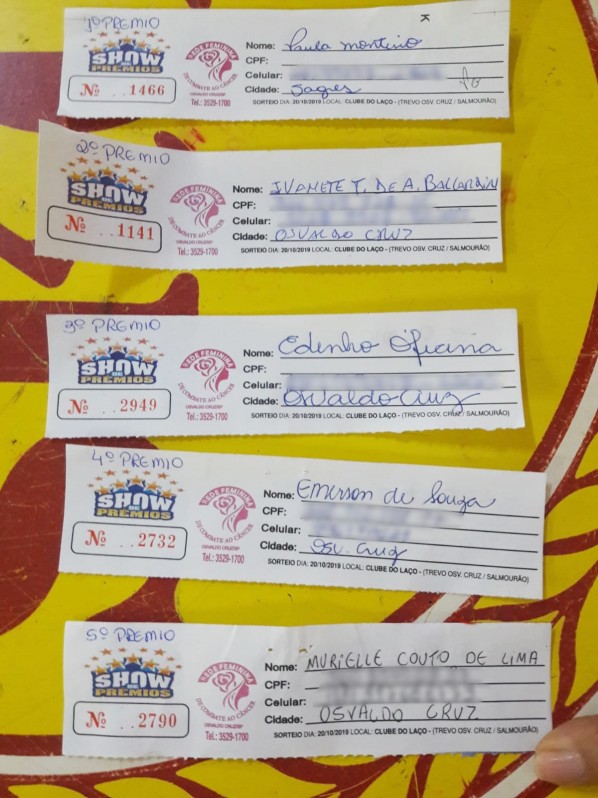 1º PREMIO
K
SHOW
DE
PRÊMIOS
Nº ..1466
REDE FEMININA
DE COMBATE AO CÂNCER
OSVALDO CRUZ/SP
Tel.: 3529-1700
Nome: Paula Monteiro
CPF:
Celular:
Cidade: Sagres
SORTEIO DIA: 20/10/2019 LOCAL: CLUBE DO LAÇO - (TREVO OSV. CRUZ / SALMOURÃO)
2º PREMIO
SHOW
DE
PRÊMIOS
Nº ..1141
REDE FEMININA
DE COMBATE AO CÂNCER
OSVALDO CRUZ/SP
Tel.: 3529-1700
Nome: IVANETE T. DE A. BALLARDIN
CPF:
Celular:
Cidade: OSVALDO CRUZ
SORTEIO DIA: 20/10/2019 LOCAL: CLUBE DO LAÇO - (TREVO OSV. CRUZ / SALMOURÃO)
3º PREMIO
SHOW
DE
PRÊMIOS
Nº ..2949
REDE FEMININA
DE COMBATE AO CÂNCER
OSVALDO CRUZ/SP
Tel.: 3529-1700
Nome: Edinho Oficina
CPF:
Celular:
Cidade: Osvaldo Cruz
SORTEIO DIA: 20/10/2019 LOCAL: CLUBE DO LAÇO - (TREVO OSV. CRUZ / SALMOURÃO)
4º PREMIO
SHOW
DE
PRÊMIOS
Nº ..2732
REDE FEMININA
DE COMBATE AO CÂNCER
OSVALDO CRUZ/SP
Tel.: 3529-1700
Nome: Emerson de Souza
CPF:
Celular:
Cidade: Osv. Cruz
SORTEIO DIA: 20/10/2019 LOCAL: CLUBE DO LAÇO - (TREVO OSV. CRUZ / SALMOURÃO)
5º PREMIO
SHOW
DE
PRÊMIOS
Nº ..2790
REDE FEMININA
DE COMBATE AO CÂNCER
OSVALDO CRUZ/SP
Tel.: 3529-1700
Nome: MURIELLE COUTO DE LIMA
CPF:
Celular:
Cidade: OSVALDO CRUZ
SORTEIO DIA: 20/10/2019 LOCAL: CLUBE DO LAÇO - (TREVO OSV. CRUZ / SALMOURÃO)